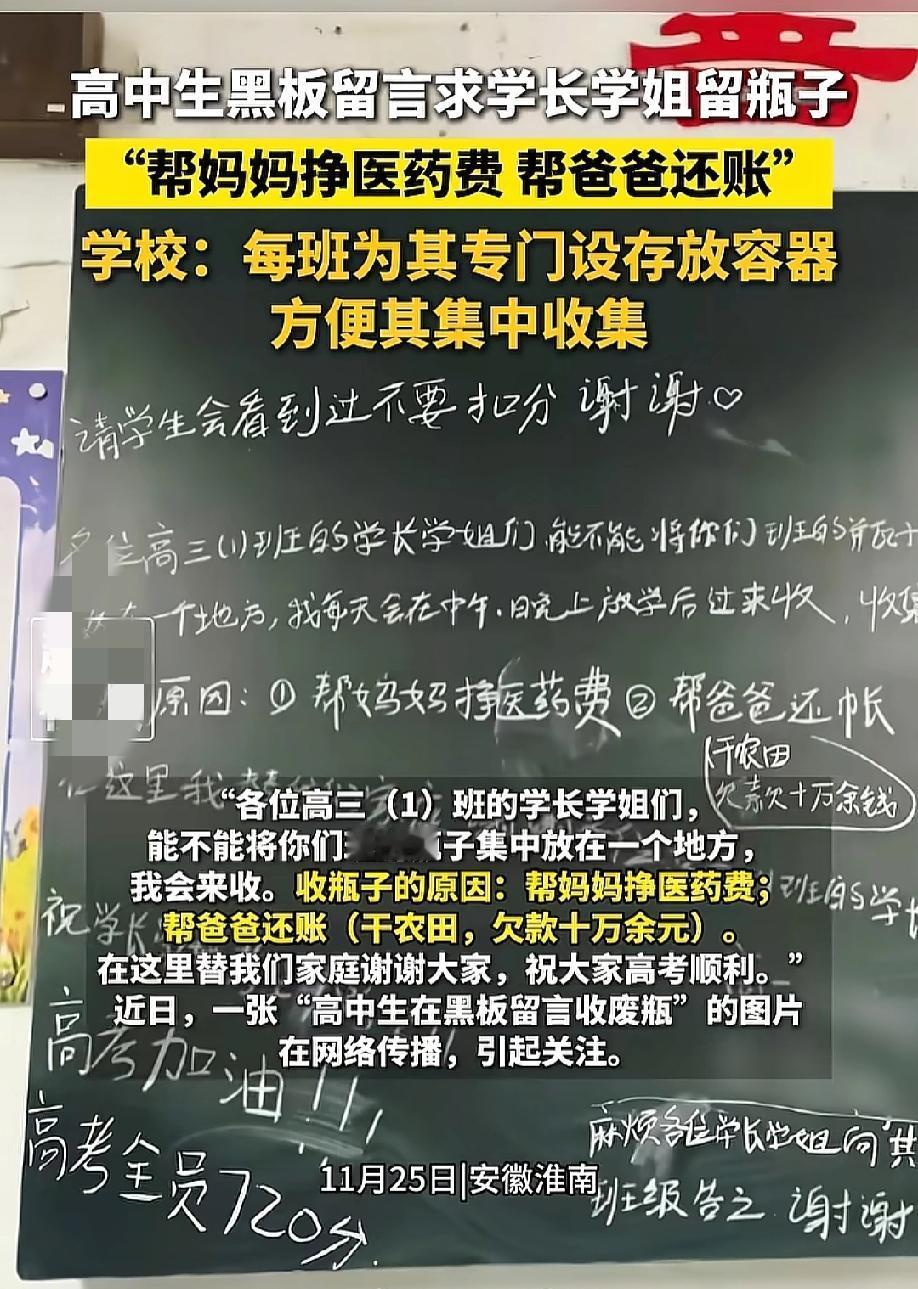 高中生黑板留言求学长学姐留瓶子
“帮妈妈挣医药费 帮爸爸还账”
学校：每班为其专门设存放容器
方便其集中收集
请学生会看到过不要扣分 谢谢♡
各位高三(1)班的学长学姐们 能不能将你们班的
一个地方,我每天会在中午.晚上放学后过来收,收集
原因:① 帮妈妈挣医药费② 帮爸爸还帐
干农田
欠款十万余钱
这里我替
“各位高三（1）班的学长学姐们，
能不能将你们 子集中放在一个地方，
我会来收。收瓶子的原因：帮妈妈挣医药费；
帮爸爸还账（干农田，欠款十万余元）。
在这里替我们家庭谢谢大家，祝大家高考顺利。”
近日，一张“高中生在黑板留言收废瓶”的图片
在网络传播，引起关注。
祝学长
班的学
高考加油!!!
高考全员720分.
11月25日|安徽淮南
麻烦各位学长学姐向其
班级告之 谢谢